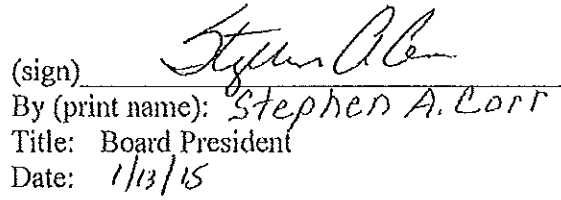 (sign) Stephen A. Corr
By (print name): Stephen A. Corr
Title: Board President
Date: 1/13/15